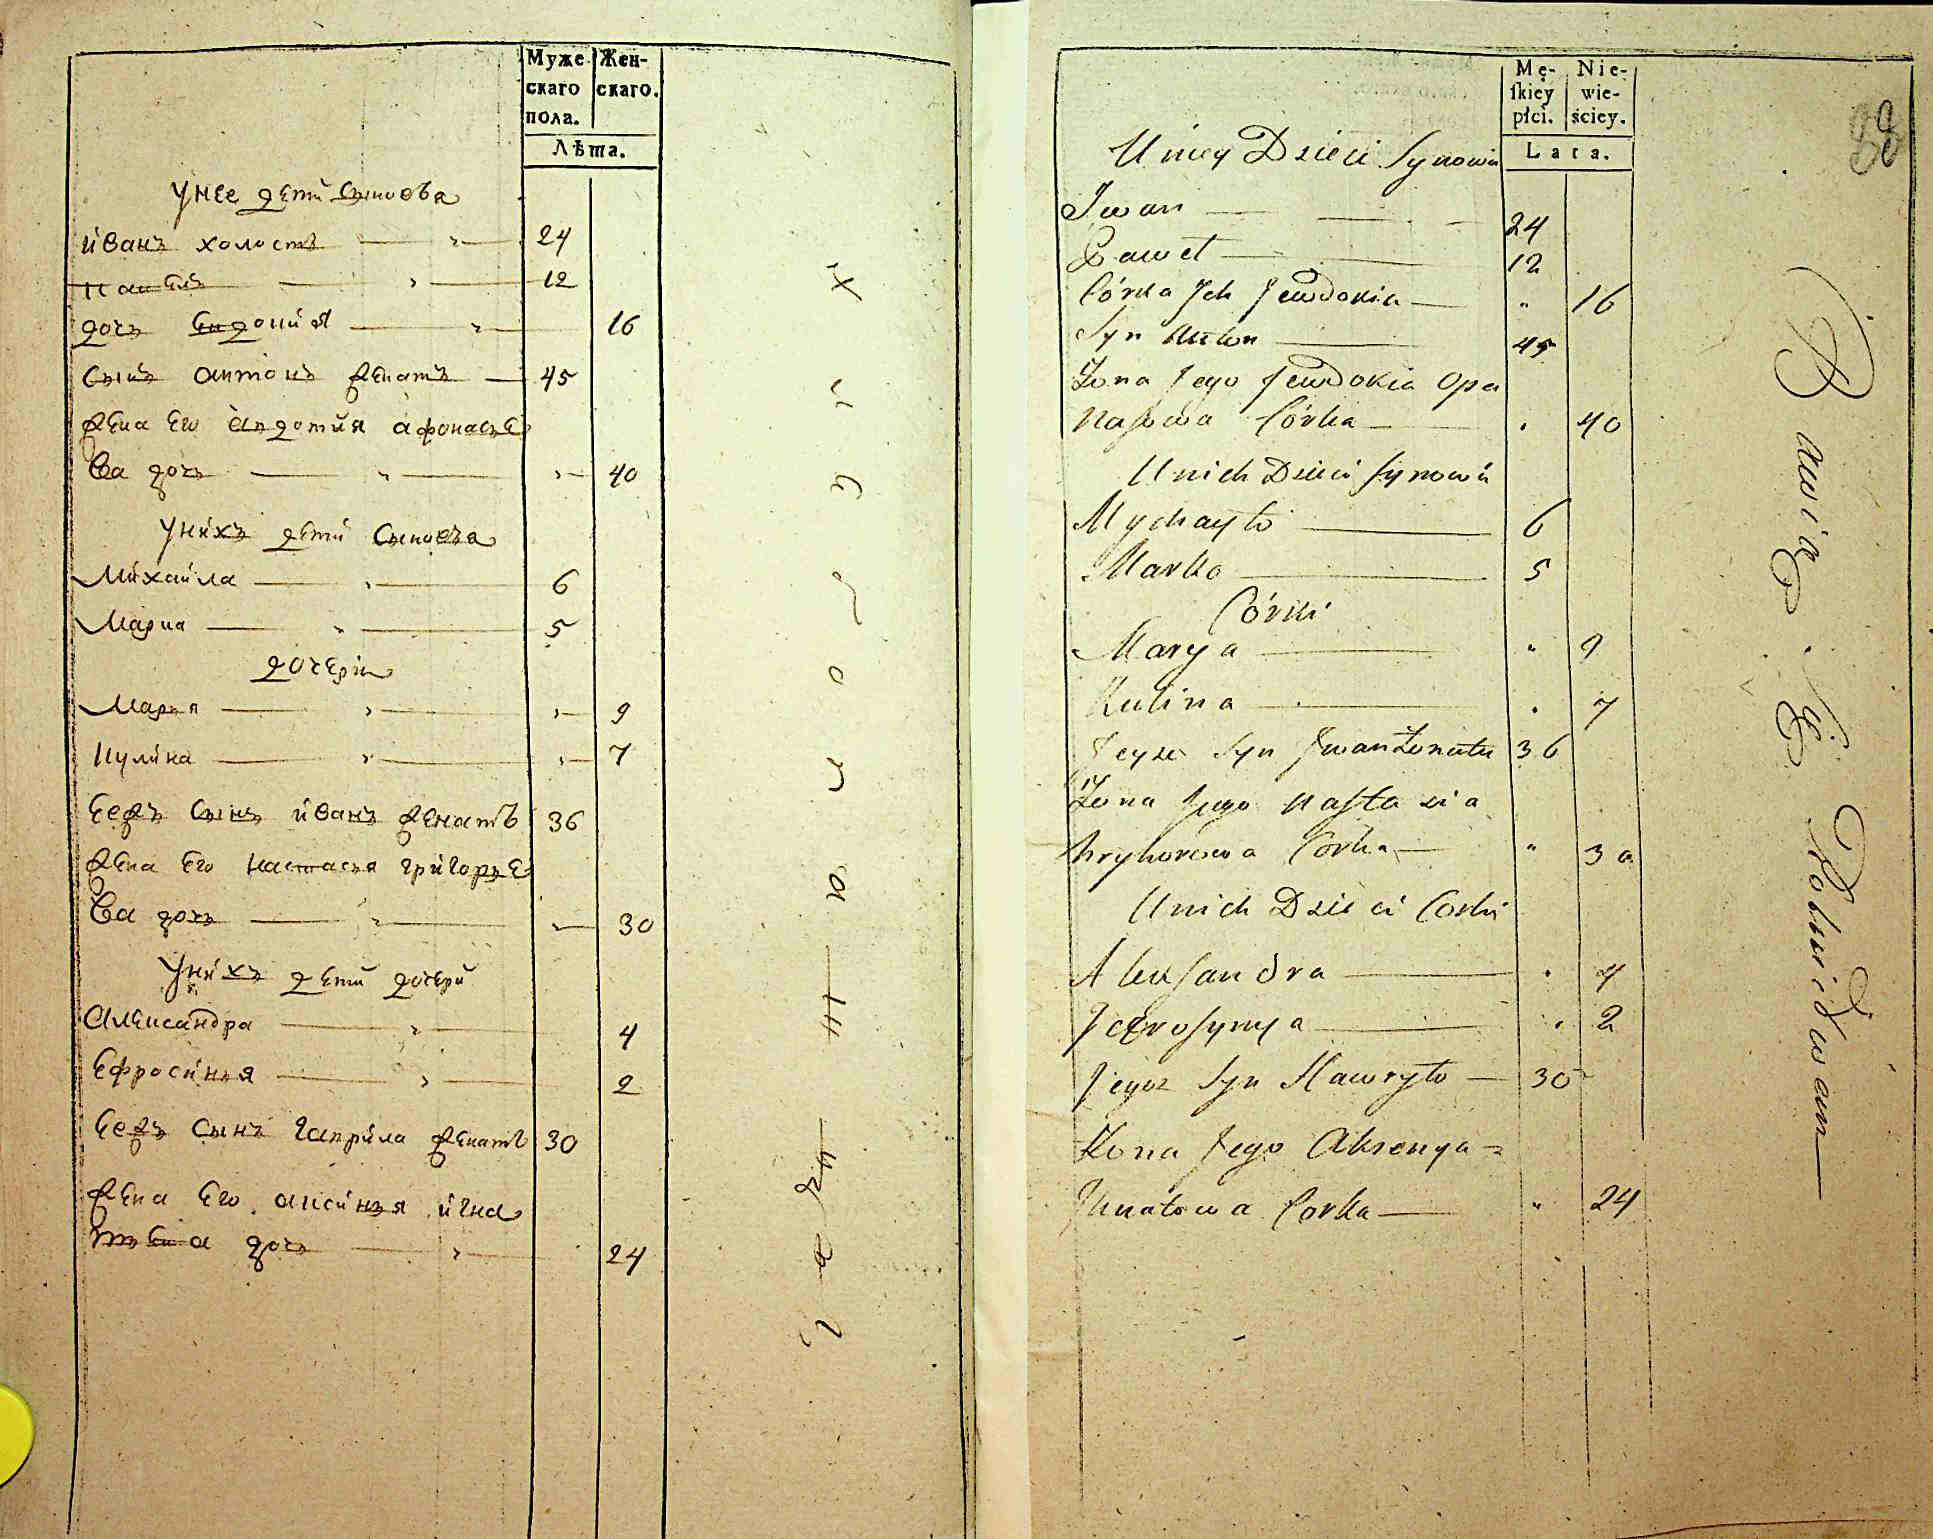 Муже
скаго
пола.
Жен-
скаго.
Лѣта.
Унее дети сыновѣа
йванъ холостъ 24
павелъ 12
дочь Евдокия 16
Сынъ антонъ женатъ 45
жена Его авдотия афонасье
ва дочь 40
Унихъ дети Сыновъа
Михайла 6
Марка 5
дочери
Марья 9
Кулина 7
Еежъ Сынъ йванъ женатъ 36
жена Его настасья григорье
ва дочь 30
Унихъ дети дочери
Александра 4
Ефросинья 2
Еежъ сынъ гаврила женатъ 30
жена Его аксинья игна
тьева дочь 24
Mę-
skiey
płci.
Nie-
wie-
ściey.
Lata.
38
Uniey Dzieci Synowie
Iwan 24
Paweł 12
Córka Ich Jewdokia 16
Syn Anton 45
Żona Jego Jewdokia Opa
nasowa Córka 40
Unich Dzieci Synowie
Mychayło 6
Marko 5
Córki
Marya 9
Kulina 7
Jeyże Syn Iwan Żonaty 36
Żona Jego Nastazia
hryhorowa Corka 30
Unich Dzieci Corki
Alexandra 4
Jefrosynya 2
Jeyże Syn Hawryło 30
Żona Jego Aksenya
Ihnatowa Corka 24
Bawią się Rolnictwem